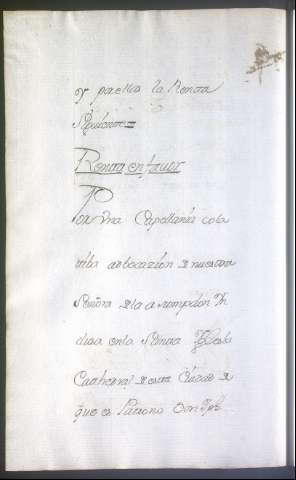 y para ello la Renta
Siguiente=
Renta en favor
Por Una Capellania cola
tiba adbocazion de nuestra
Señora de la assumpcion Yn
clusa en la Santa Yglesia
Cathedral de esta Ciudad de
que es Patrono Don Jph